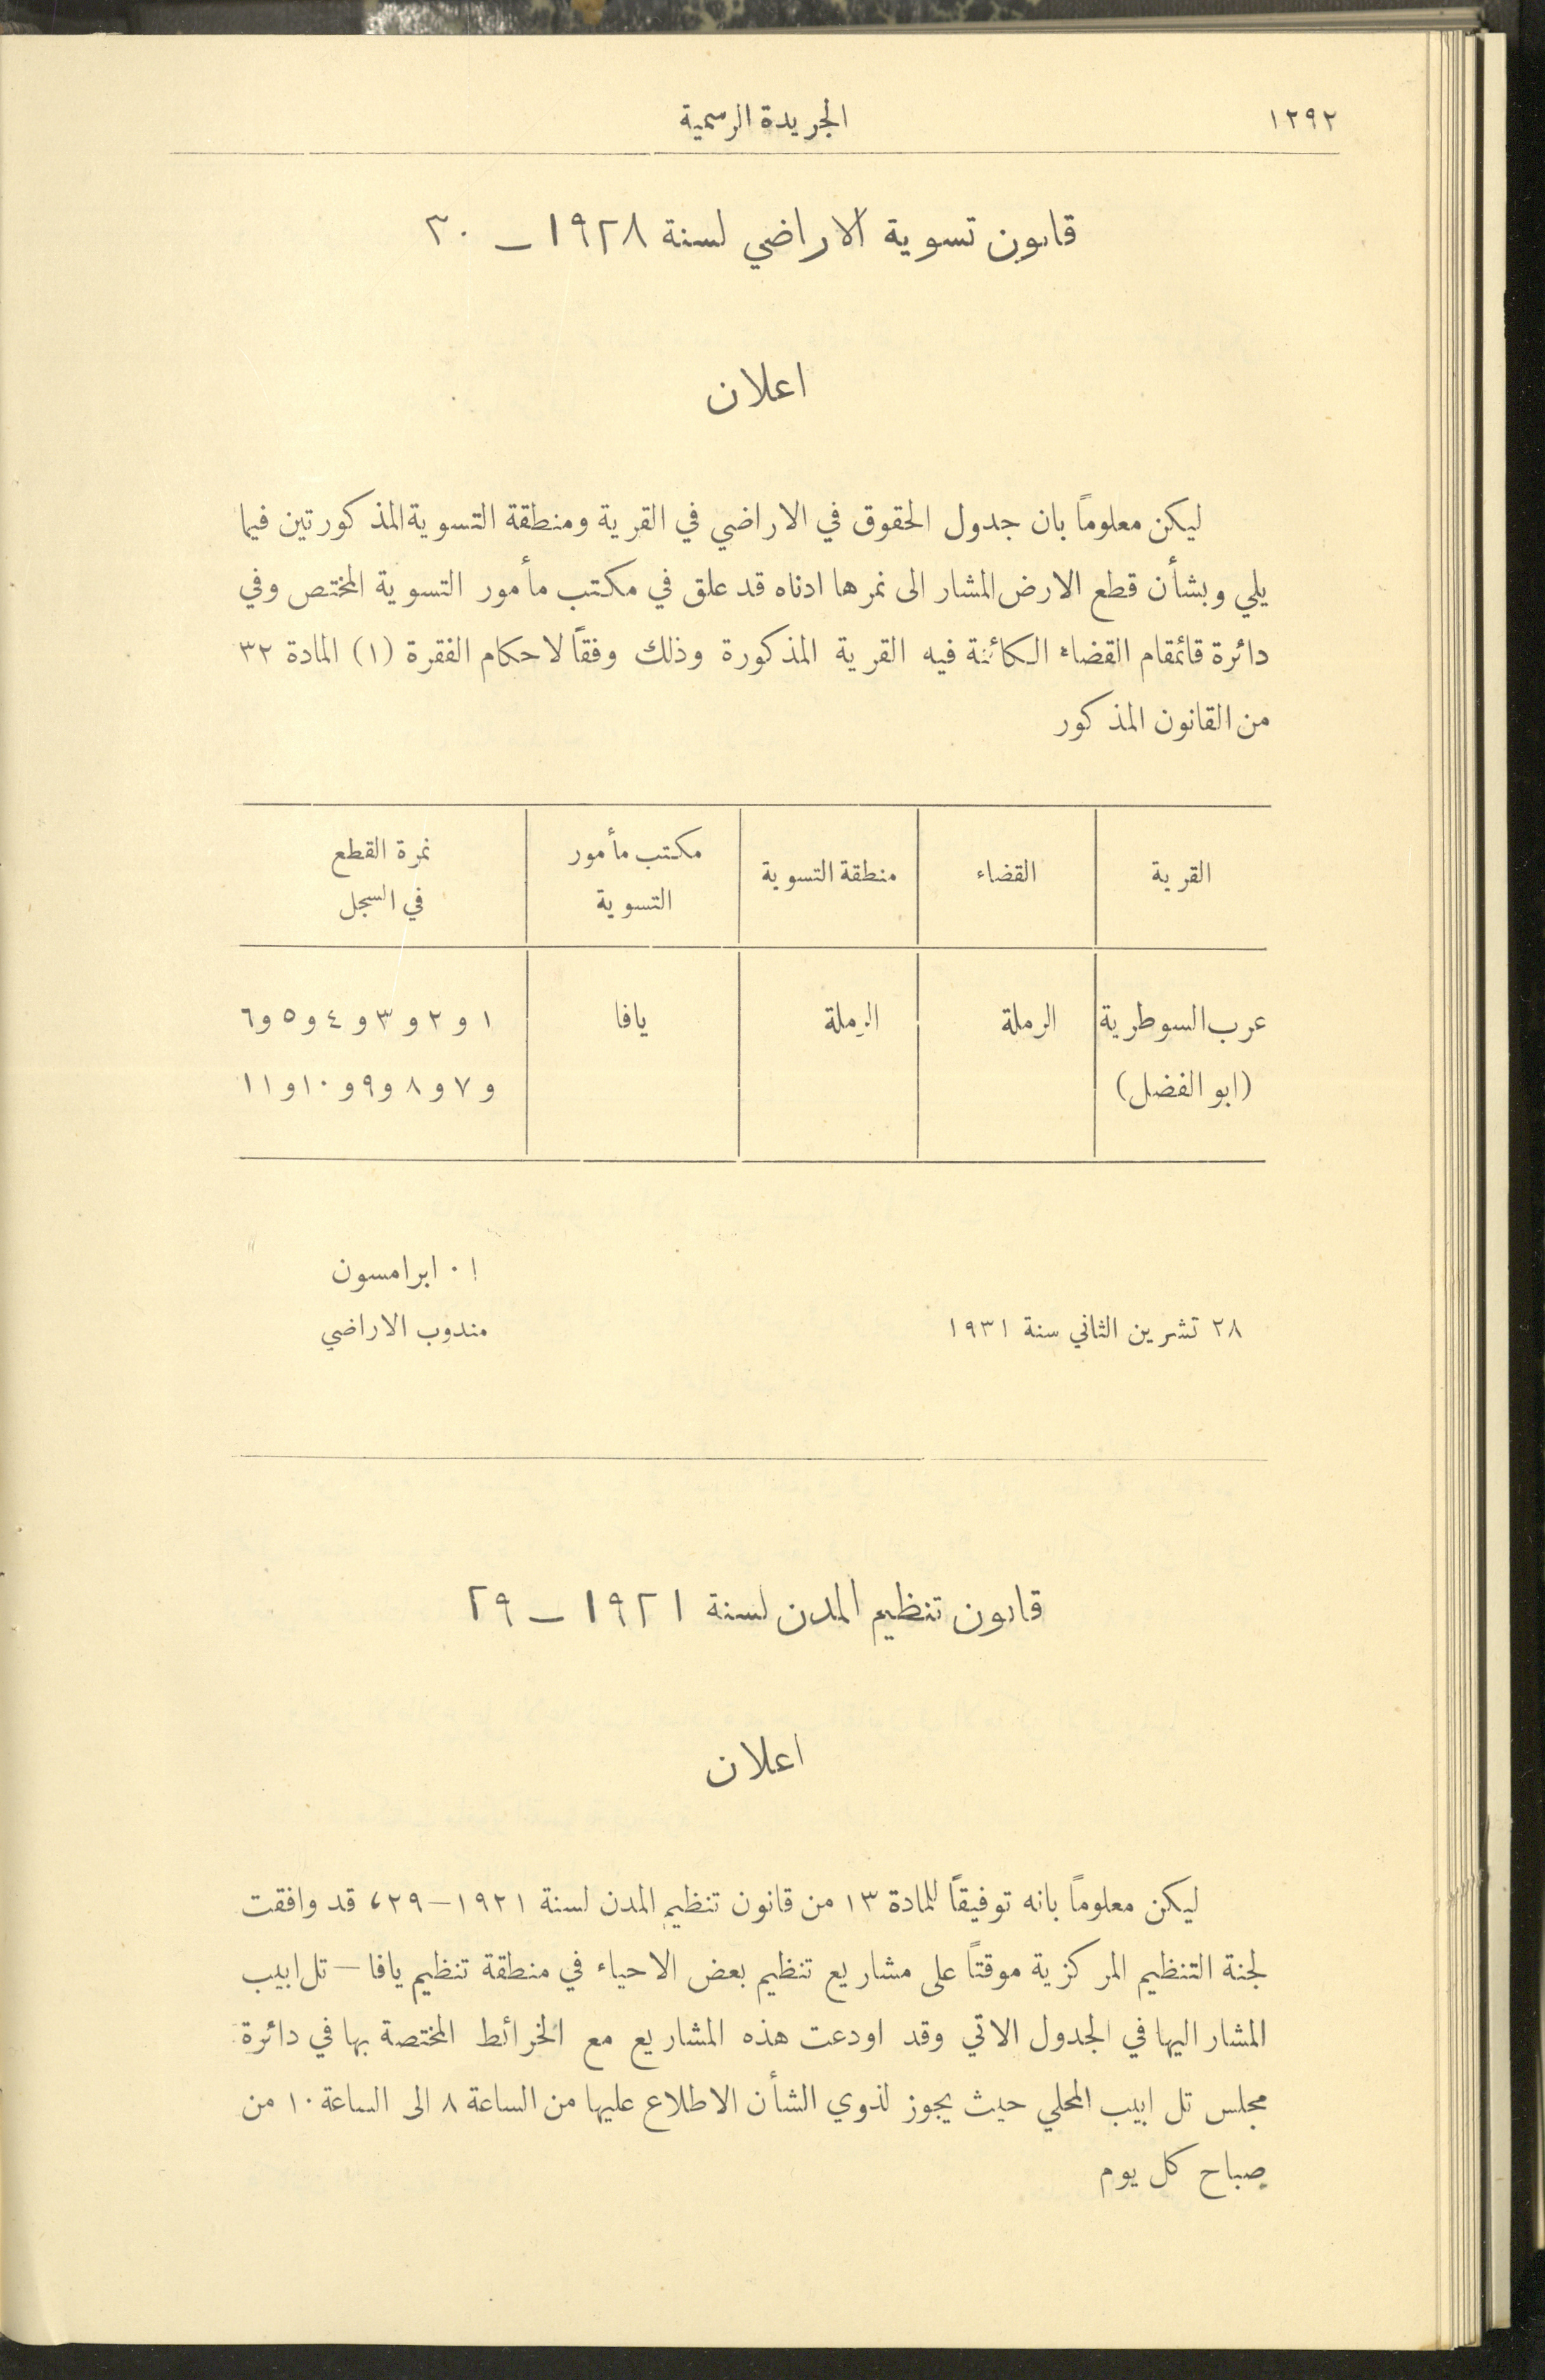 ١٢٩٢
الجريدة الرسمية
قانون تسوية الاراضي لسنة ١٩٢٨ – ٣٠
اعلان
ليكن معلوماً بان جدول الحقوق في الاراضي في القرية ومنطقة التسوية المذكورتين فيما
يلي وبشأن قطع الارض المشار الى نمرها ادناه قد علق في مكتب مأمور التسوية المختص وفي
دائرة قائمقام القضاء الكائنة فيه القرية المذكورة وذلك وفقاً لاحكام الفقرة (١) المادة ٣٢
من القانون المذكور
القرية
القضاء
منطقة التسوية
مكتب مأمور
التسوية
نمرة القطع
في السجل
عرب السوطرية
(ابو الفضل)
الرملة
الرملة
يافا
١ و ٢ و ٣ و ٤ و ٥ و ٦
و ٧ و ٨ و ٩ و ١٠ و ١١
ا ٠ ابرامسون
مندوب الاراضي
٢٨ تشرين الثاني سنة ١٩٣١
قانون تنظيم المدن لسنة ١٩٢١ – ٢٩
اعلان
ليكن معلوماً بانه توفيقاً للمادة ١٣ من قانون تنظيم المدن لسنة ١٩٢١–٢٩، قد وافقت
لجنة التنظيم المركزية موقتاً على مشاريع تنظيم بعض الاحياء في منطقة تنظيم يافا – تل ابيب
المشار اليها في الجدول الاتي وقد اودعت هذه المشاريع مع الخرائط المختصة بها في دائرة
مجلس تل ابيب المحلي حيث يجوز لذوي الشأن الاطلاع عليها من الساعة ٨ الى الساعة ١٠ من
صباح كل يوم